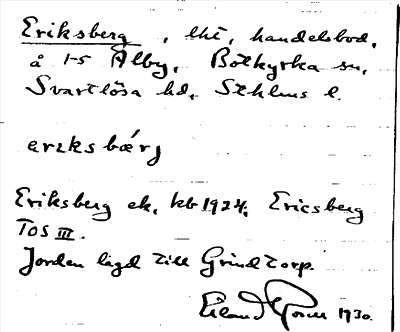 Eriksberg, lht, handelsbod,
å 1-5 Alby, Botkyrka sn,
Svartlösa hd, Sthlms l.
erıksbærj
Eriksberg ek. kb 1924. Ericsberg
TOS III.
Jorden lagd till Grindtorp.
1930.